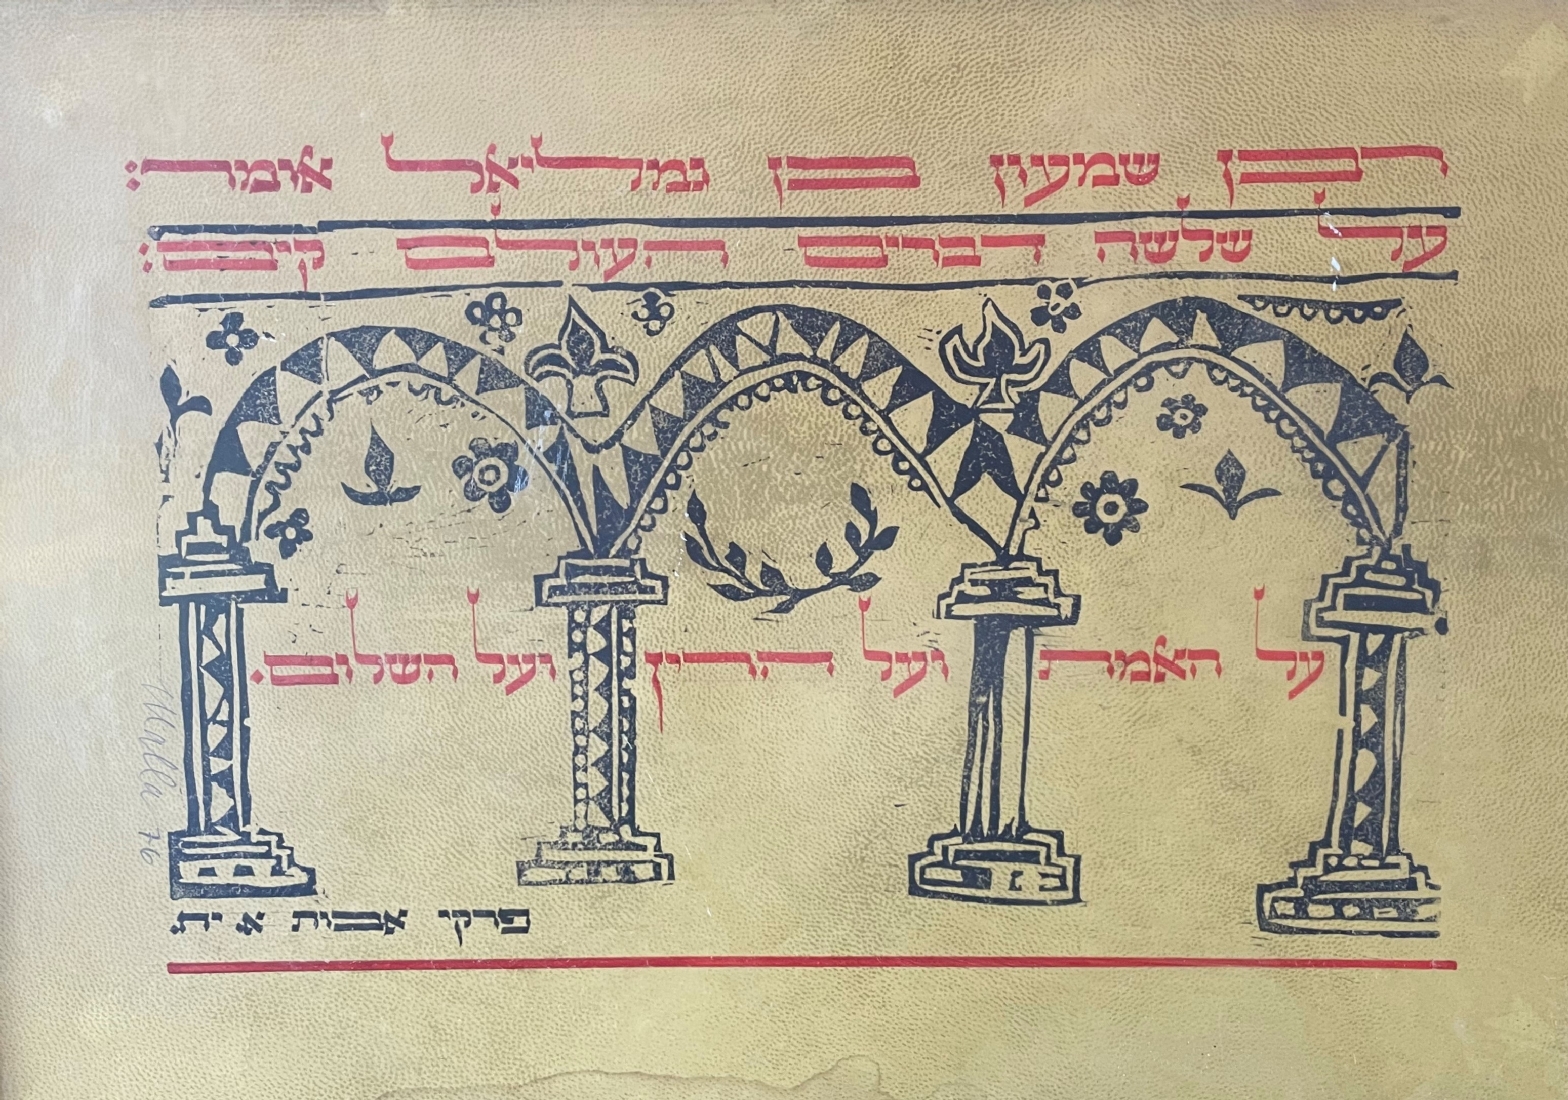 רבן שמעון בן גמליאל אומר:
על שלשה דברים העולם קים:
על האמת ועל הדין ועל השלום.
פרקי אבות א יח.
76